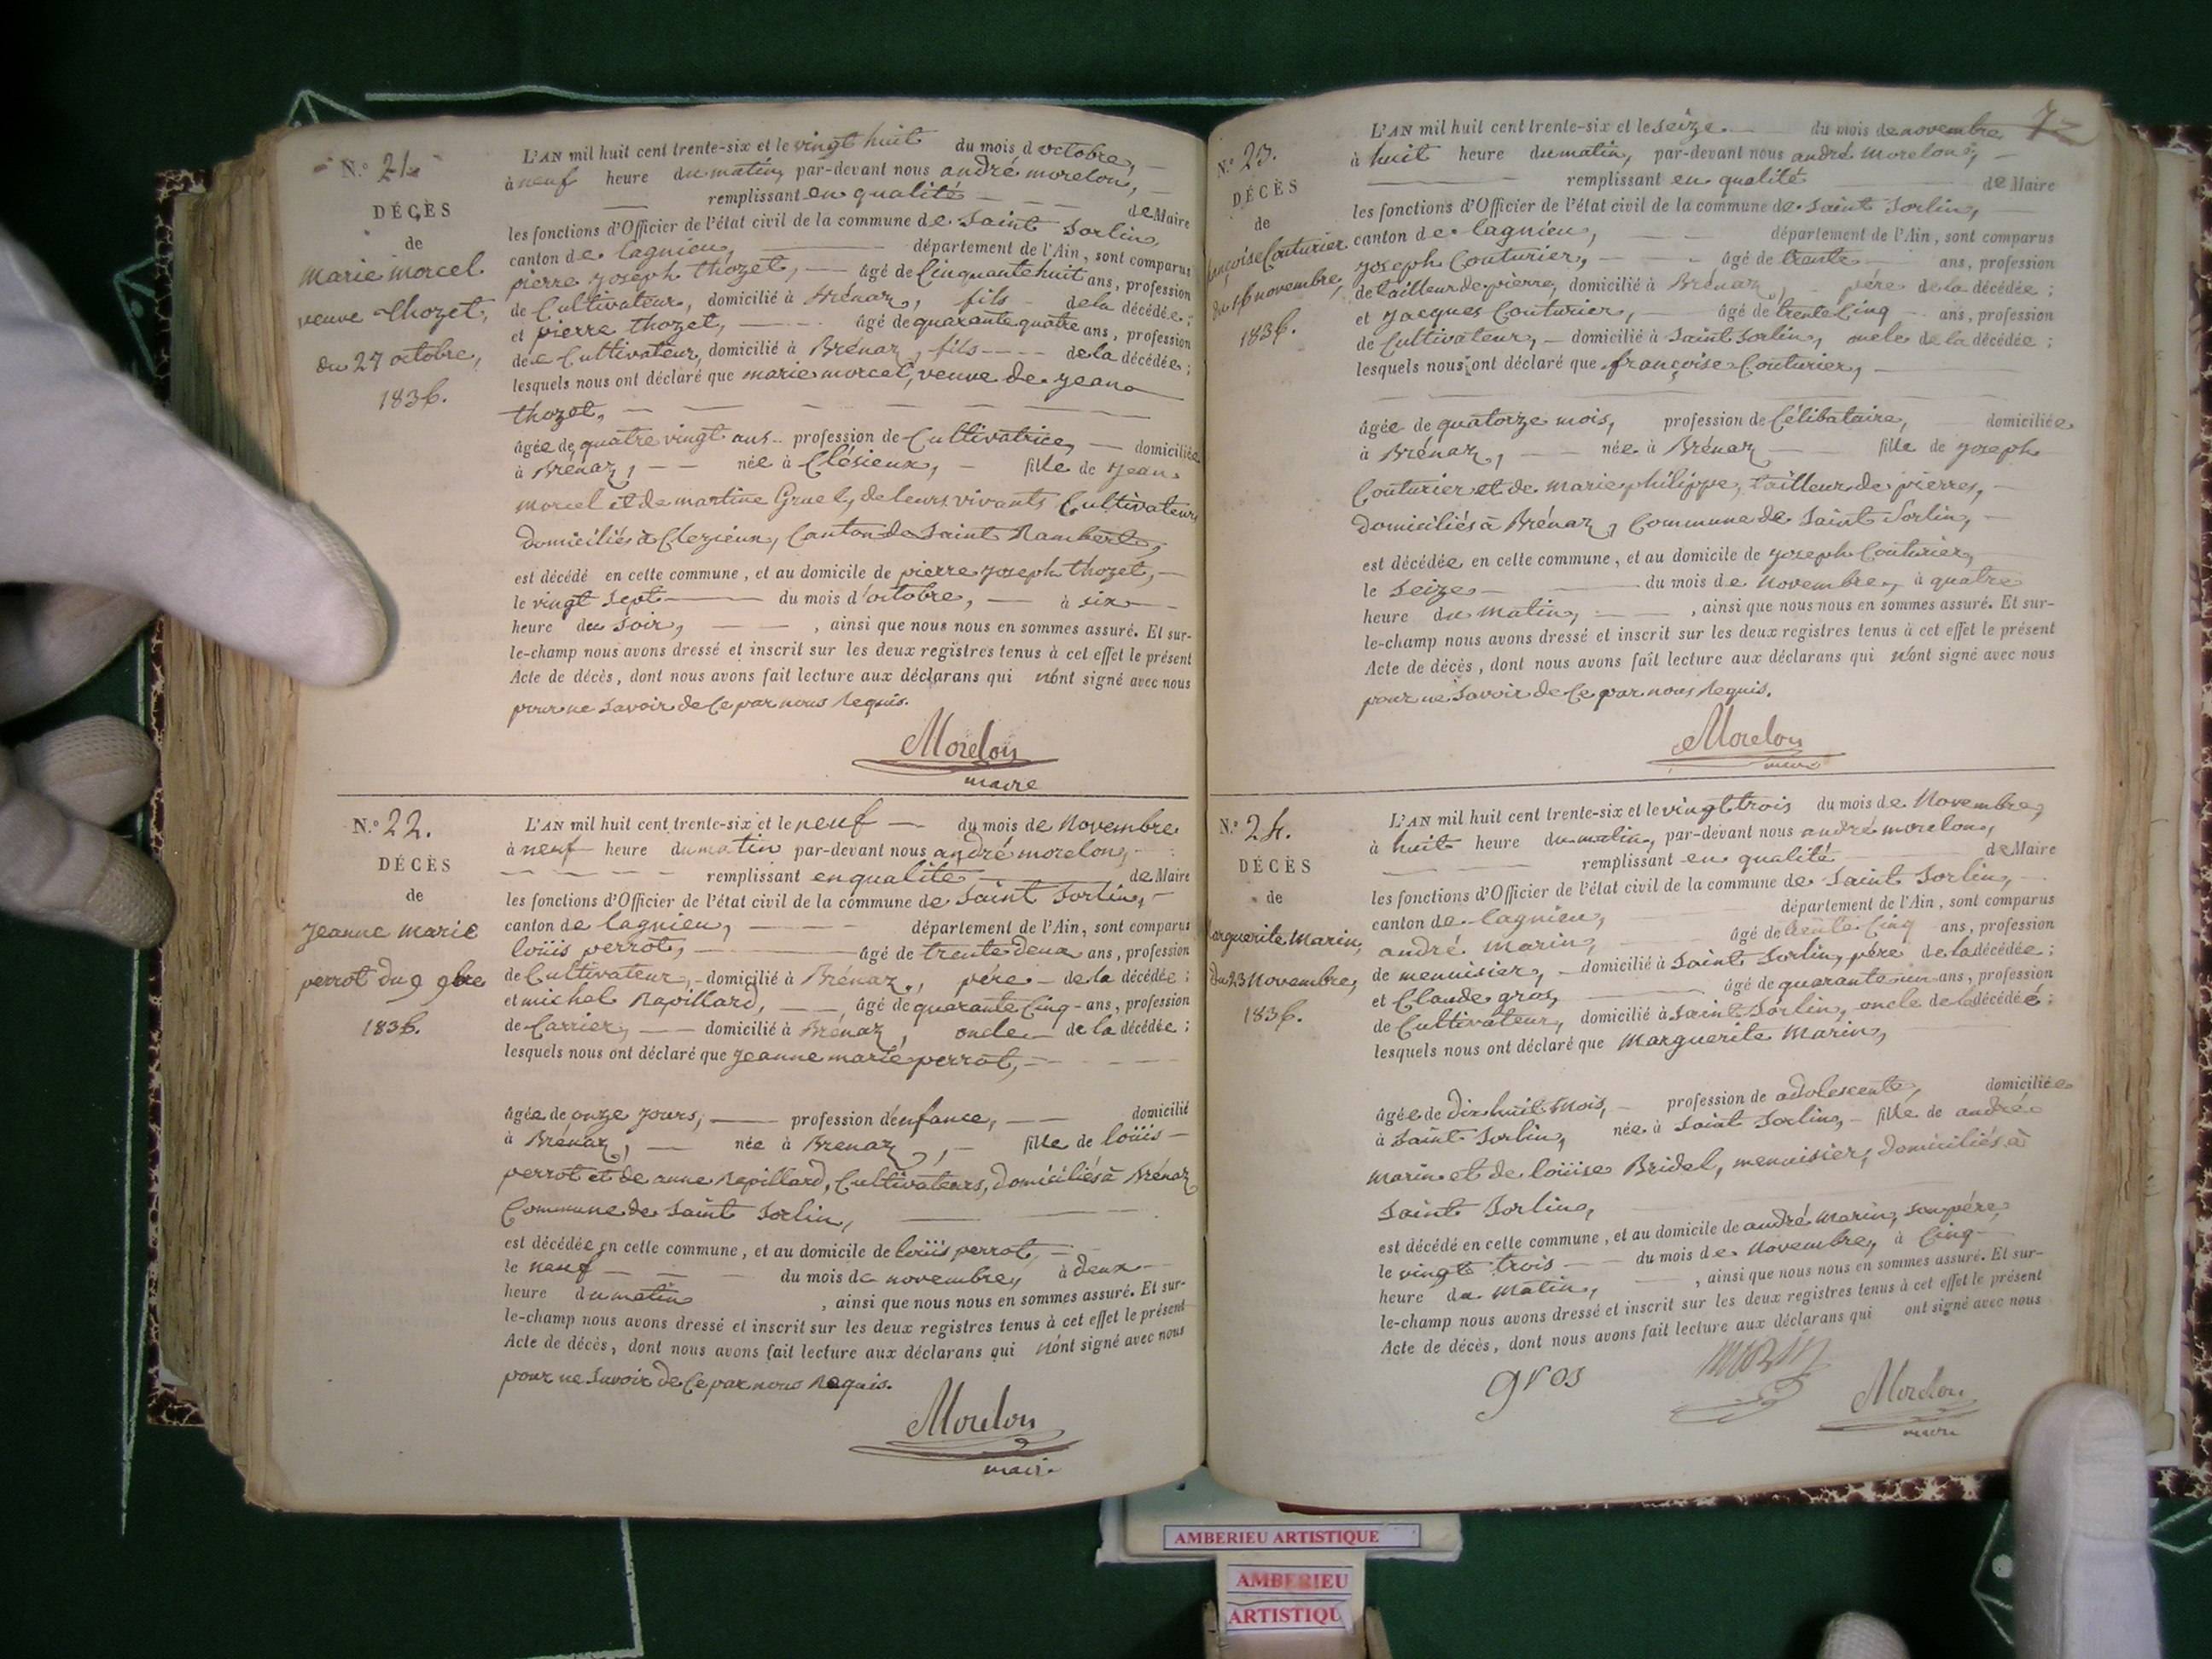 N.º 21.
DÉCÈS
de
marie morcel
veuve Thozet,
du 27 octobre,
1836.
L'AN mil huit cent trente-six et le vingt huit du mois d'octobre,
à neuf heure du matin, par-devant nous andré morelon,
remplissant en qualité de Maire
les fonctions d'Officier de l'état civil de la commune de Saint Sorlin,
canton de lagnieu, département de l'Ain, sont comparus
pierre joseph thozet, âgé de Cinquante huit ans, profession
de Cultivateur, domicilié à Brénaz, fils de la décédée ;
et pierre thozet, âgé de quarante quatre ans, profession
de Cultivateur, domicilié à Brénaz, fils de la décédée ;
lesquels nous ont déclaré que marie morcel, veuve de jean
thozet,
âgée de quatre vingt ans profession de Cultivatrice, domiciliée
à Brénaz, née à Clésieux, fille de jean
morcel et de martine Gruel, de leurs vivants Cultivateurs
domiciliés à Clezieux, Canton de Saint Rambert,
est décédé en cette commune, et au domicile de pierre joseph thozet,
le vingt sept du mois d'octobre, à six
heure du soir, , ainsi que nous nous en sommes assuré. Et sur-
le-champ nous avons dressé et inscrit sur les deux registres tenus à cet effet le présent
Acte de décès, dont nous avons fait lecture aux déclarans qui n'ont signé avec nous
pour ne savoir de ce par nous requis.
Morelon
maire
N.º 22.
DÉCÈS
de
jeanne marie
perrot du 9 9bre
1836.
L'AN mil huit cent trente-six et le neuf du mois de Novembre
à neuf heure du matin par-devant nous andré morelon,
remplissant en qualité de Maire
les fonctions d'Officier de l'état civil de la commune de Saint Sorlin,
canton de lagnieu, département de l'Ain, sont comparus
loüis perrot, âgé de trente deux ans, profession
de Cultivateur, domicilié à Brénaz, père de la décédée ;
et michel Rapillard, âgé de quarante Cinq ans, profession
de Carrier, domicilié à Brénaz, oncle de la décédée ;
lesquels nous ont déclaré que jeanne marie perrot,
âgée de onze jours, profession d'enfance, domicilié
à Brénaz, née à Brenaz, fille de loüis
perrot et de anne Rapillard, Cultivateurs, domiciliés à Brénaz
Commune de Saint Sorlin,
est décédée en cette commune, et au domicile de loüis perrot,
le neuf du mois de novembre, à deux
heure du matin , ainsi que nous nous en sommes assuré. Et sur-
le-champ nous avons dressé et inscrit sur les deux registres tenus à cet effet le présent
Acte de décès, dont nous avons fait lecture aux déclarans qui n'ont signé avec nous
pour ne savoir de ce par nous requis.
Morelon
maire
72
N.º 23.
DÉCÈS
de
ançoise Couturier
du 16 novembre,
1836.
L'AN mil huit cent trente-six et le seize du mois de novembre
à huit heure du matin, par-devant nous andré morelon,
remplissant en qualité de Maire
les fonctions d'Officier de l'état civil de la commune de Saint Sorlin,
canton de lagnieu, département de l'Ain, sont comparus
joseph Couturier, âgé de trente ans, profession
de tailleur de pierre, domicilié à Brénaz, père de la décédée ;
et jacques Couturier, âgé de trente Cinq ans, profession
de Cultivateur, domicilié à Saint Sorlin, oncle de la décédée ;
lesquels nous ont déclaré que françoise Couturier,
âgée de quatorze mois, profession de Célibataire, domiciliée
à Brénaz, née à Brénaz fille de joseph
Couturier et de marie philippe, tailleur de pierres,
domiciliés à Brénaz, Commune de Saint Sorlin,
est décédée en cette commune, et au domicile de joseph Couturier,
le seize du mois de Novembre, à quatre
heure du matin, , ainsi que nous nous en sommes assuré. Et sur-
le-champ nous avons dressé et inscrit sur les deux registres tenus à cet effet le présent
Acte de décès, dont nous avons fait lecture aux déclarans qui n'ont signé avec nous
pour ne savoir de ce par nous requis.
Morelon
maire
N.º 24.
DÉCÈS
de
arguerite Marin,
du 23 Novembre,
1836.
L'AN mil huit cent trente-six et le vingt trois du mois de Novembre,
à huit heure du matin, par-devant nous andré morelon,
remplissant en qualité de Maire
les fonctions d'Officier de l'état civil de la commune de Saint Sorlin,
canton de lagnieu, département de l'Ain, sont comparus
andré marin, âgé de trente Cinq ans, profession
de menuisier, domicilié à Saint Sorlin, père de la décédée ;
et Claude gros, âgé de quarante un ans, profession
de Cultivateur, domicilié à Saint Sorlin, oncle de la décédée ;
lesquels nous ont déclaré que Marguerite Marin,
âgée de dix huit mois, profession de adolescente, domiciliée
à Saint Sorlin, née à Saint Sorlin, fille de andré
marin et de loüise Bridel, menuisier, domiciliés à
Saint Sorlin,
est décédé en cette commune, et au domicile de andré Marin, son père,
le vingt trois du mois de Novembre, à Cinq
heure du matin, , ainsi que nous nous en sommes assuré. Et sur-
le-champ nous avons dressé et inscrit sur les deux registres tenus à cet effet le présent
Acte de décès, dont nous avons fait lecture aux déclarans qui ont signé avec nous
gros
Morelon
maire
AMBERIEU ARTISTIQUE
AMBERIEU
ARTISTIQU